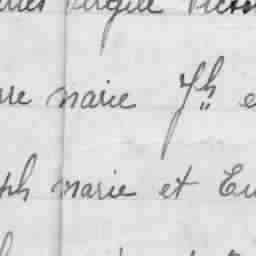 Virgile Victor
re marie Jh e
ph marie et Eu